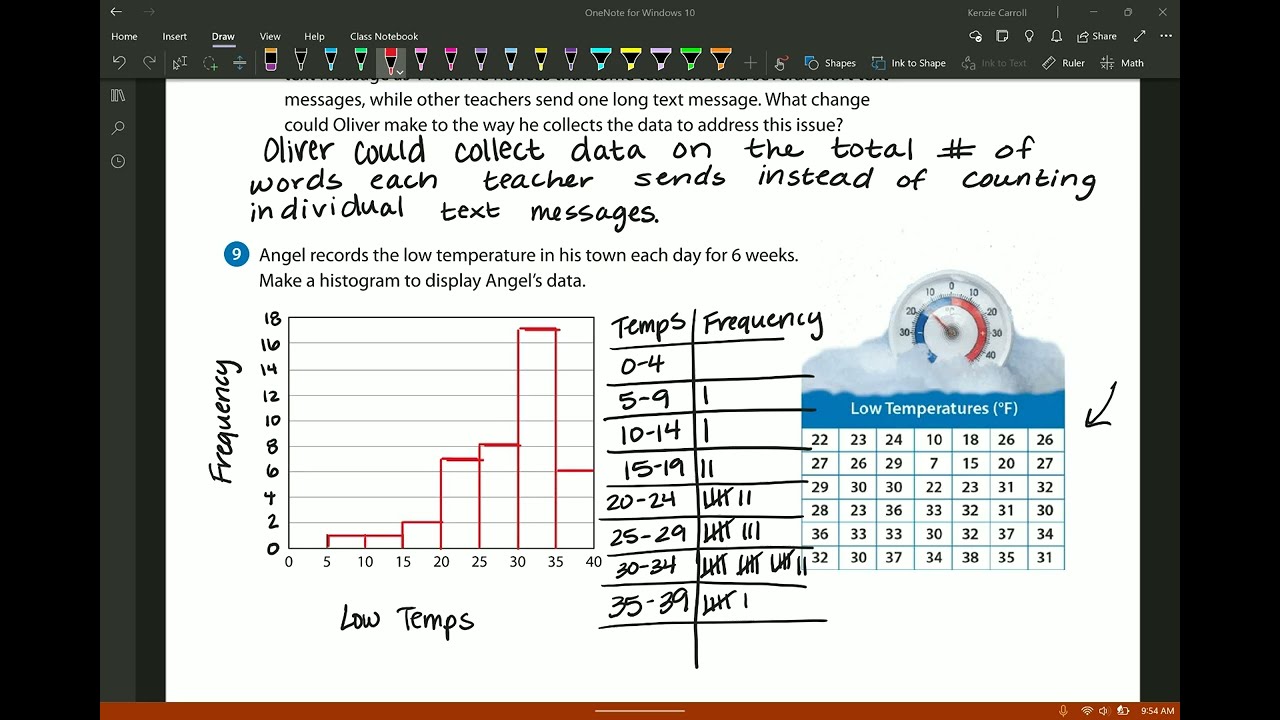 OneNote for Windows 10
Kenzie Carroll
Home Insert Draw View Help Class Notebook
Share
Shapes Ink to Shape Ink to Text Ruler Math
messages, while other teachers send one long text message. What change
could Oliver make to the way he collects the data to address this issue?
Oliver could collect data on the total # of
words each teacher sends instead of counting
individual text messages.
9 Angel records the low temperature in his town each day for 6 weeks.
Make a histogram to display Angel's data.
Frequency
18
16
14
12
10
8
6
4
2
0
0 5 10 15 20 25 30 35 40
Low Temps
Temps Frequency
0-4
5-9 |
10-14 |
15-19 ||
20-24 |||| ||
25-29 |||| |||
30-34 |||| |||| |||| ||
35-39 |||| |
30 20 10 0 10 20 30 40
Low Temperatures (°F)
22 23 24 10 18 26 26
27 26 29 7 15 20 27
29 30 30 22 23 31 32
28 23 36 33 32 31 30
36 33 33 30 32 37 34
32 30 37 34 38 35 31
9:54 AM